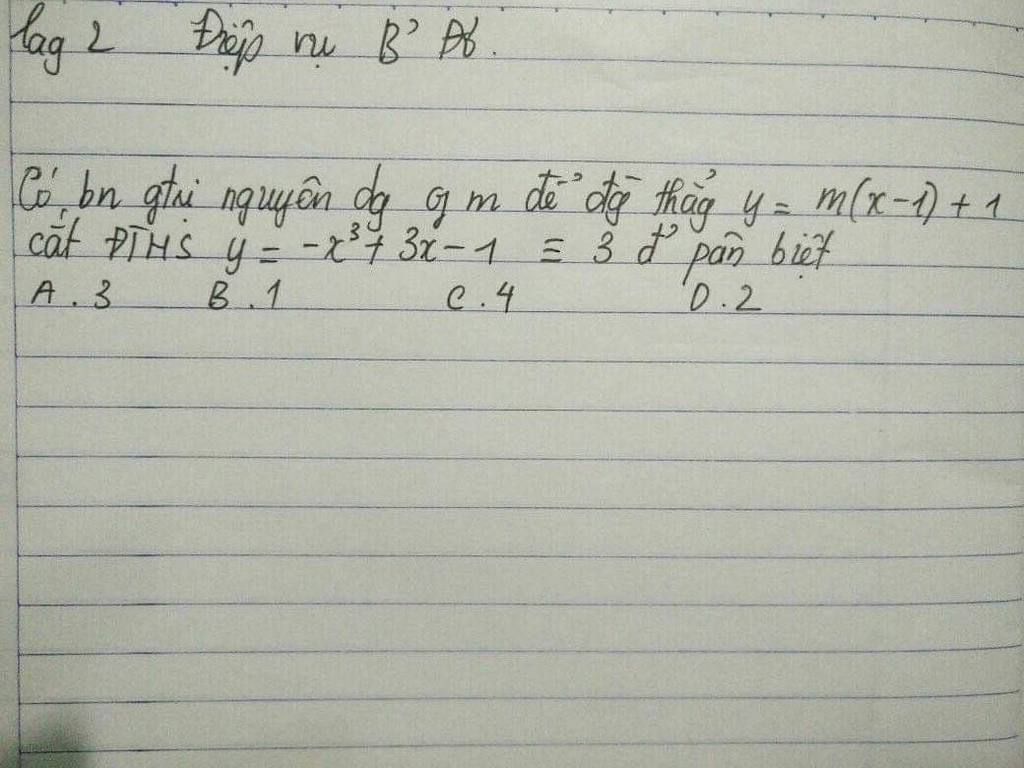 lag 2 Điệp vụ B² Đó.
Có bn gtrị nguyên dg cg m để đg̃ thẳg y = m(x-1) + 1
cắt ĐTHS y = -x³ + 3x - 1 = 3 đ² pân biệt
A. 3 B. 1 C. 4 D. 2